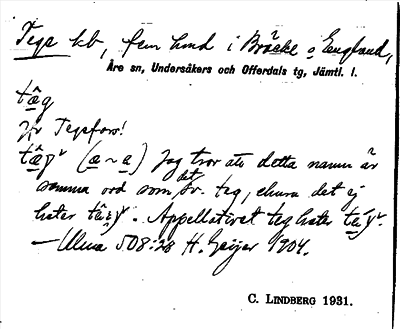 Tege kb, fem hmd i Bräcke o England,
Åre sn, Undersåkers och Offerdals tg, Jämtl. l.
tâ̱g
Jfr Tegefors!
(a̱ ~ a̱) Jag tror att detta namn är
samma ord som det sv. teg, ehuru det ej
heter . Appellativet teg heter
— Ulma 508:28 H. Geijer 1904.
C. LINDBERG 1931.